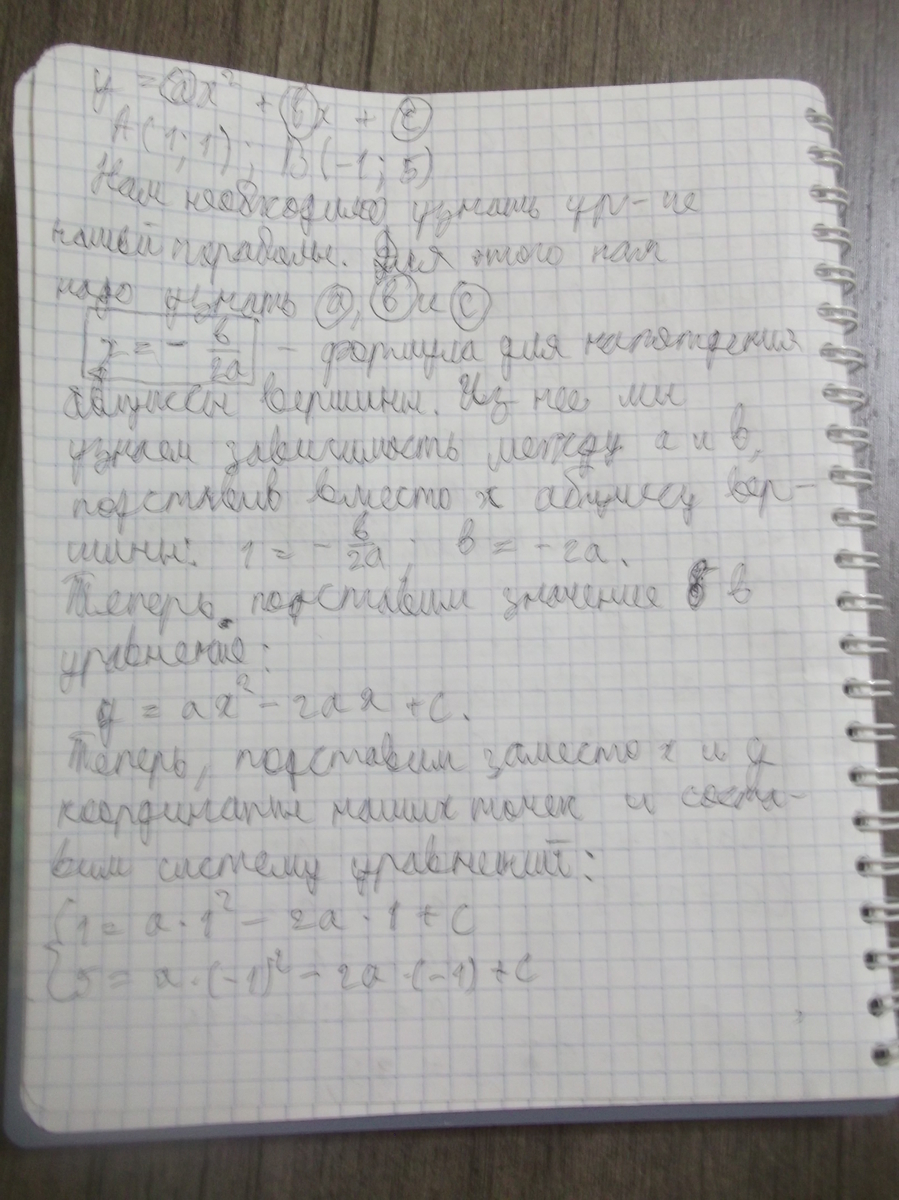 y = ax² + bx + c
A(1; 1); B(-1; 5)
Нам необходимо узнать ур-ие
нашей параболы. Для этого нам
надо узнать a, b и c
x = - b/2a - формула для нахождения
абциссы вершины. Из нее мы
узнаем зависимость между a и b,
подставив вместо x абциссу вер-
шины: 1 = - b/2a; b = -2a.
Теперь, подставим значение b в
уравнение:
y = ax² - 2ax + c.
Теперь, подставим заместо x и y
координаты наших точек и соста-
вим систему уравнений:
{1 = a · 1² - 2a · 1 + c
{5 = a · (-1)² - 2a · (-1) + c